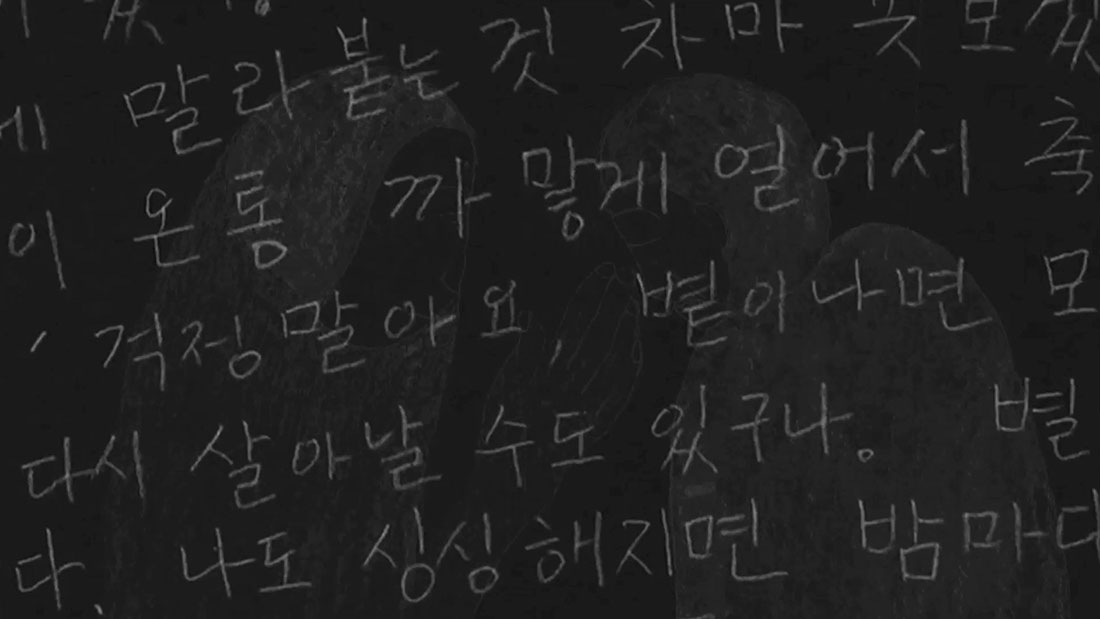 말라붙는 것 차마 못
이 온통 까맣게 열어서 축
걱정 말아요, 볕이 나면 모
다시 살아날 수도 있구나. 별
다. 나도 싱싱해지면 밤마다